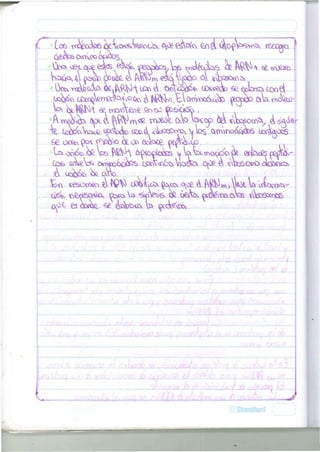 · Las moléculas de transferencia, que están en el citoplasma, recogen
ácidos amino ácidos.
· Una vez que estos están pegados, las moléculas de ARNt se mueven
hacia el punto donde el ARNm está ligado al ribosoma.
· Una molécula de ARNt con el anticodón correcto se enlaza con el
codón complementario en el ARNm. El aminoácido pegado a la molécu-
la de ARNt se mantiene en su posición.
· A medida que el ARNm se mueve a lo largo del ribosoma, el siguien
te codón hace contacto con el ribosoma, y los aminoácidos contiguos
se unen por medio de un enlace peptídico.
· La unión de los ARNt apropiados y la formación de enlaces peptídi-
cos entre los aminoácidos continúa hasta que el ribosoma alcanza
el codón de alto.
En resumen el ADN codifica para que el ARNm, lleve la informa-
ción necesaria para la síntesis de cierta proteína a los ribosomas
que es donde se elabora la proteína.
Standford